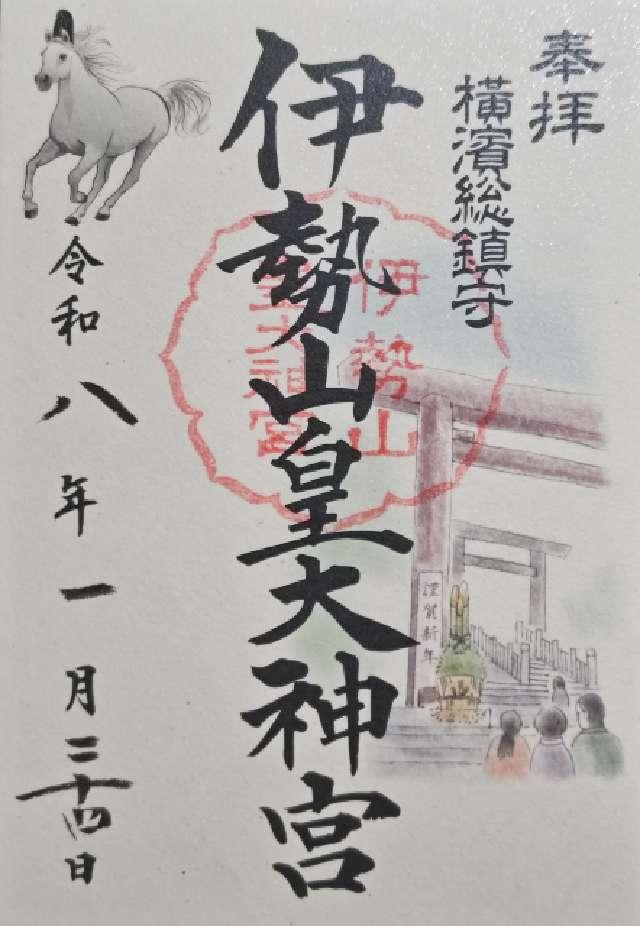 奉拝
横濱総鎮守
伊勢山皇大神宮
伊勢山
皇大神宮
謹賀新年
令和八年一月二十四日